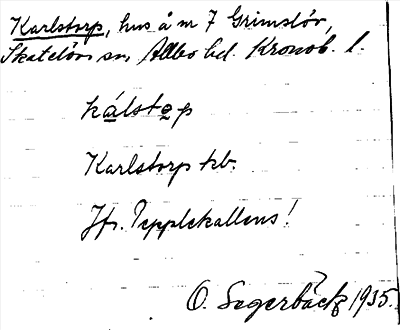 Karlstorp, hus å n 7 Grimslöv,
Skatelövs sn Allbo hd. Kronob. l.
kálstǫp
Karlstorp kb.
Jfr. Tepplekallens!
O. Segerbäck 1935.